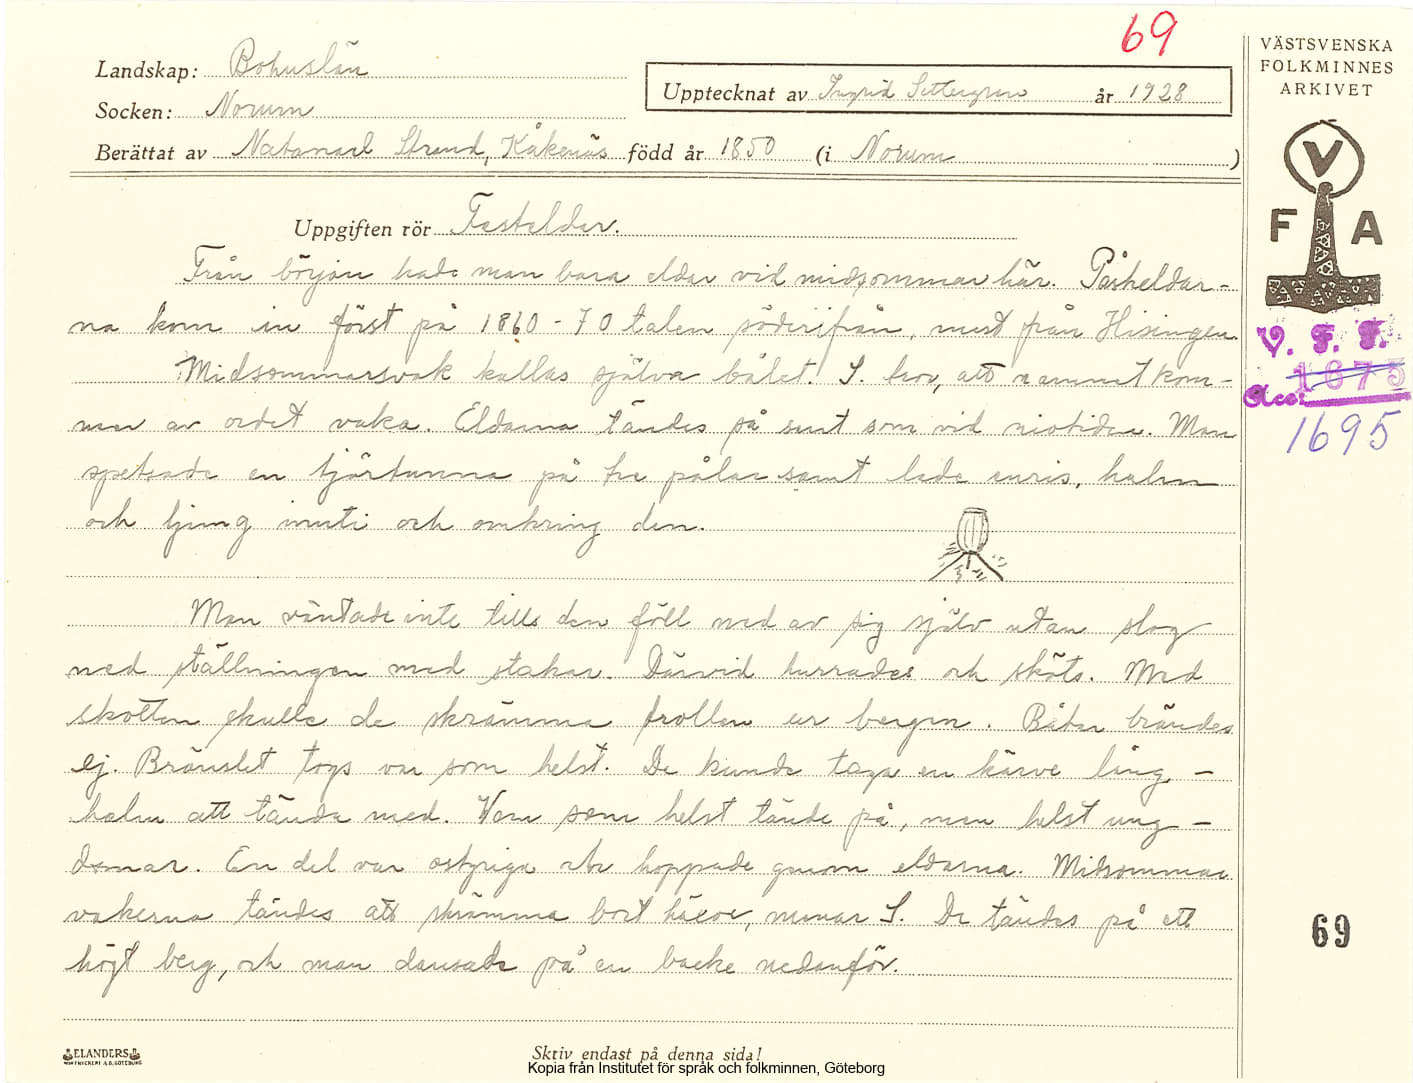 69
Landskap: Bohuslän
Socken: Norum
Upptecknat av Ingrid Settergren år 1928
Berättat av Natanael Strand, Kåkenäs född år 1850 (i Norum )
Uppgiften rör Festeldar.
Från början hade man bara eldar vid midsommar här. Påskeldar-
na kom in först på 1860-70 talen söderifrån, mest från Hisingen.
Midsommarsvak kallas själva bålet. S. tror, att namnet kom-
mer av ordet vaka. Eldarna tändes på sent som vid niotiden. Man
spetsade en tjärtunna på tre pålar samt lade enris, halm
och ljung inuti och omkring den.
Man väntade inte tills den föll ned av sig själv utan slog
ned ställningen med stakar. Därvid hurrades och sköts. Med
skotten skulle de skrämma trollen ur bergen. Båtar brändes
ej. Bränslet togs var som helst. De kunde taga en kärve lång-
halm att tända med. Vem som helst tände på, men helst ung-
domar. En del var ostyriga och hoppade genom eldarna. Midsommar
vakerna tändes att skrämma bort häxor, menar S. De tändes på ett
högt berg, och man dansade på en backe nedanför.
ELANDERS
Skriv endast på denna sida!
Kopia från Institutet för språk och folkminnen, Göteborg
VÄSTSVENSKA
FOLKMINNES
ARKIVET
V
F A
V. F. F.
1675
Acc:
1695
69